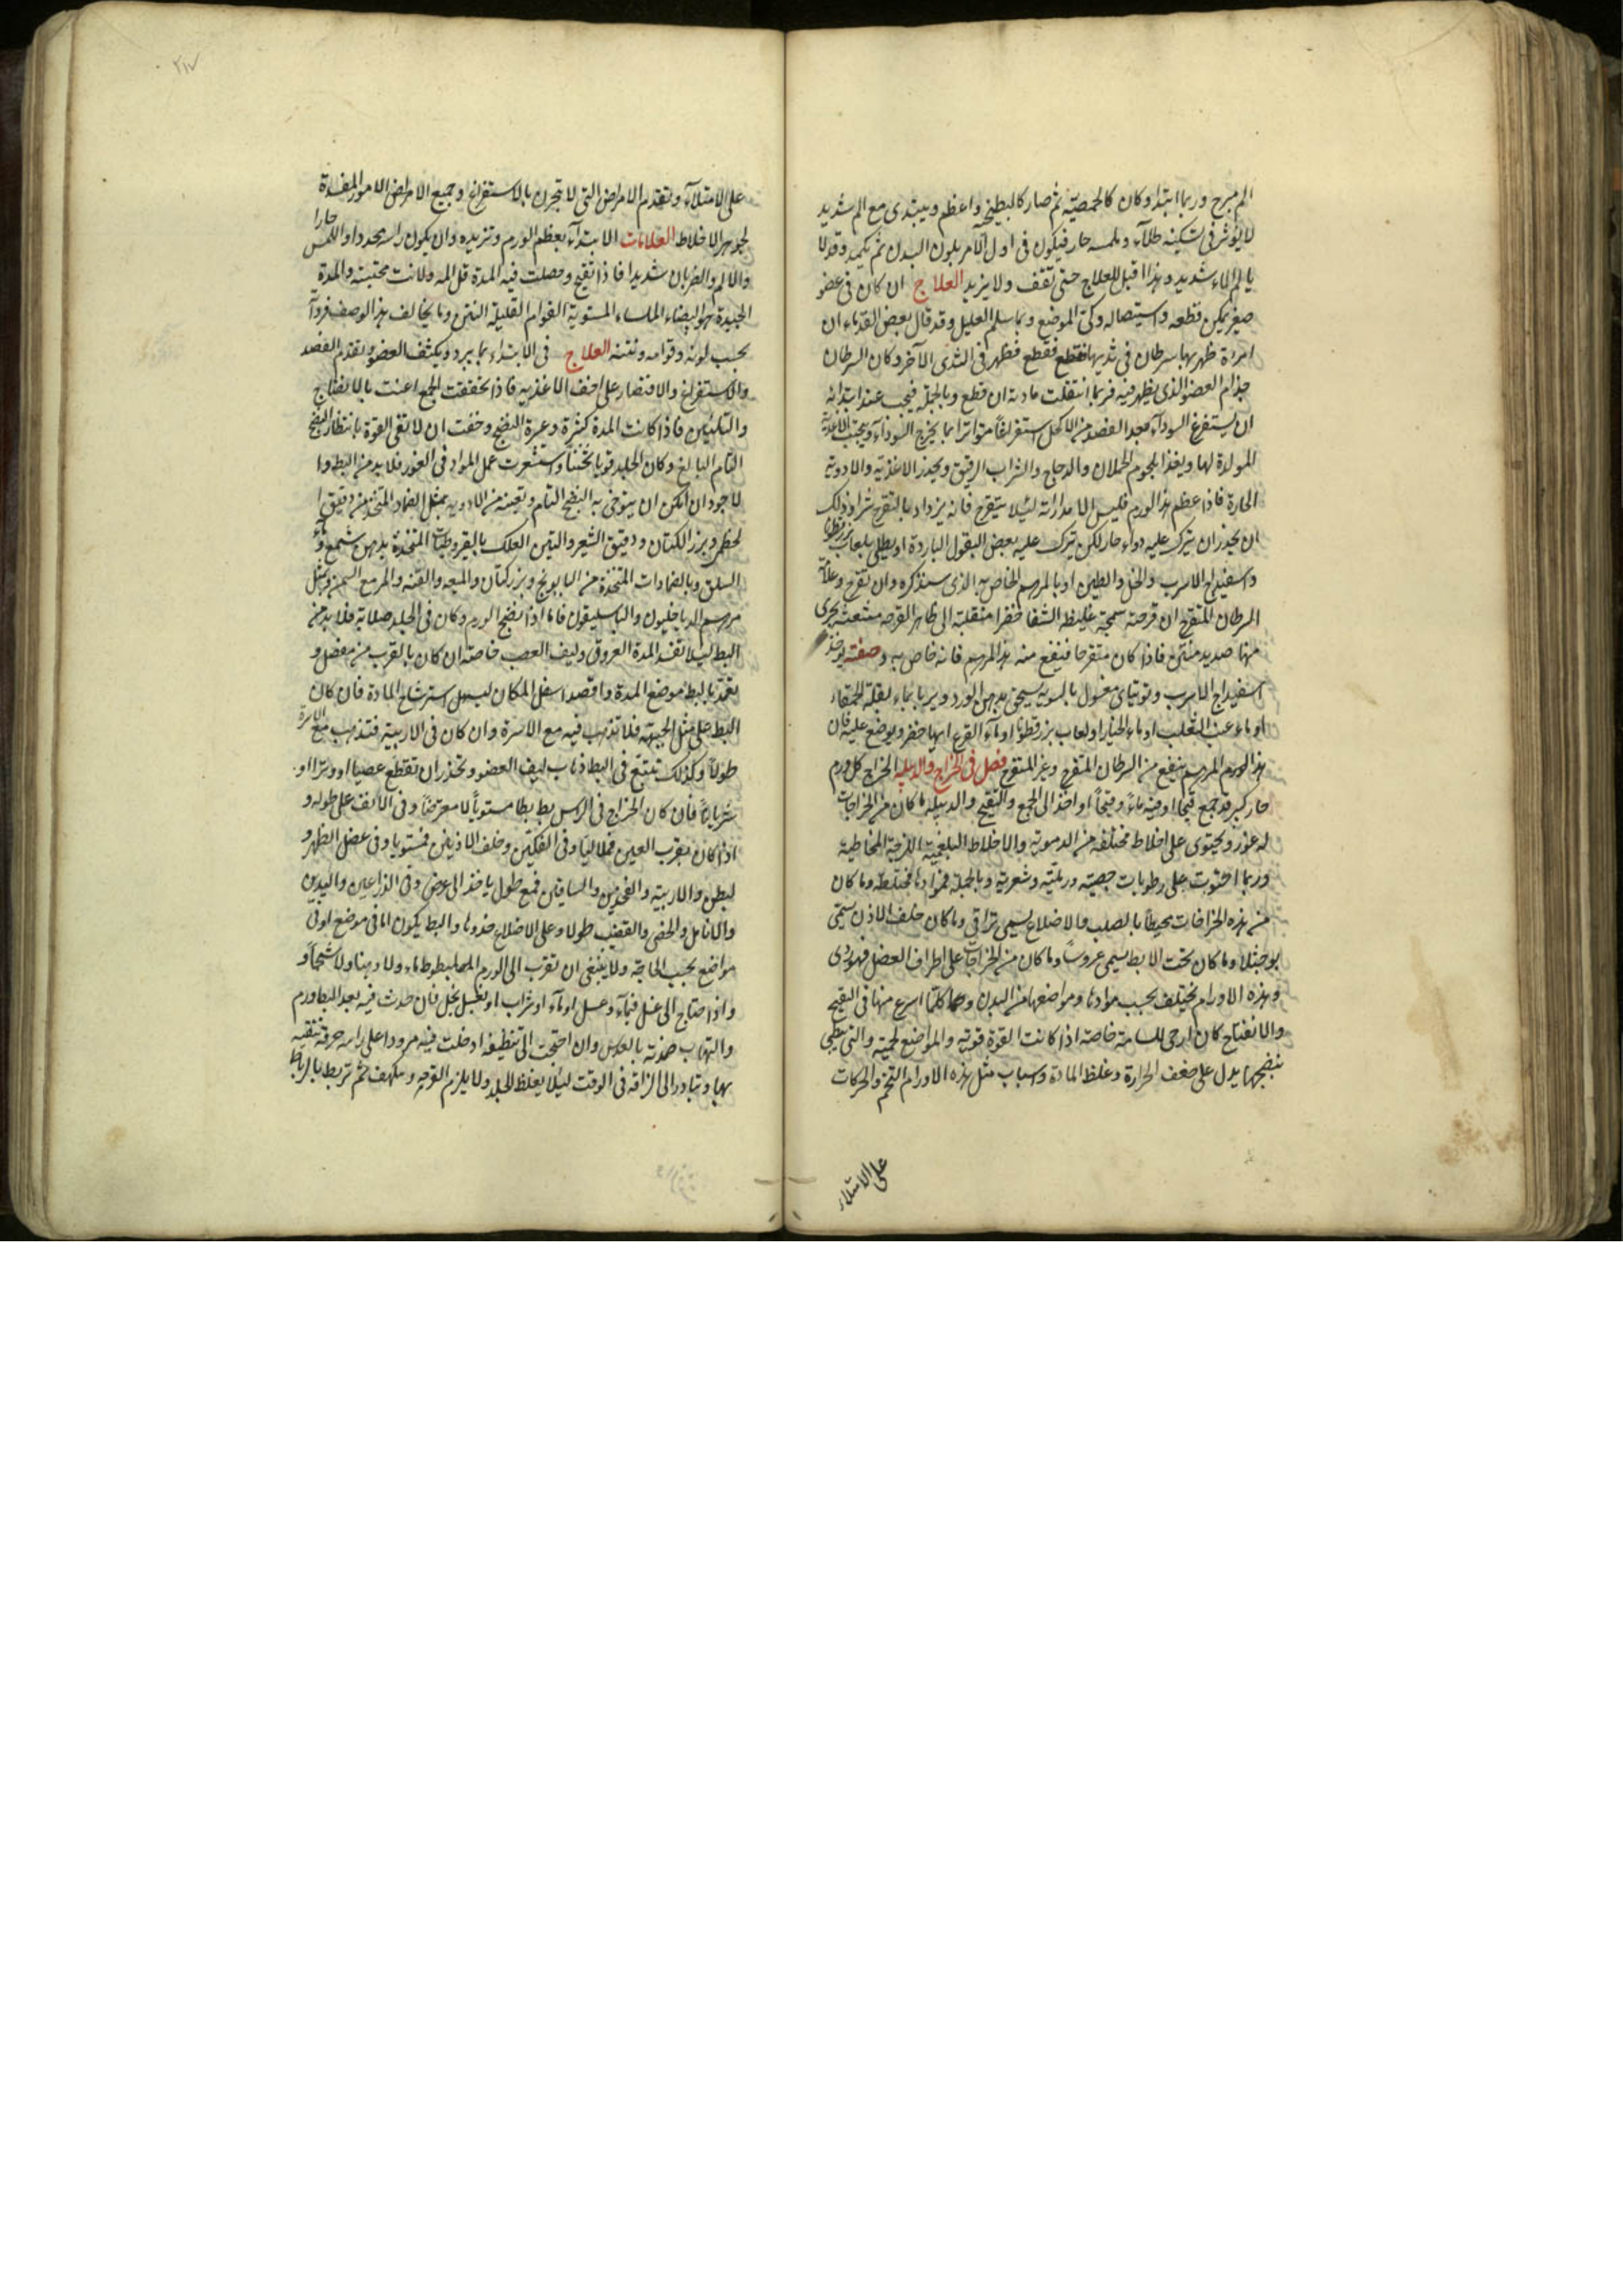 الم مبرح وربما ابتدا وكان كالحمصة ثم صار كالبطيخة واعظم ويبتدى مع الم شديد
لا يؤثر فى تسكينه طلاء وملمسه حار فيكون فى اول الامر بلون البدن ثم يكمد وقد لا
يالم الما شديد وهذا اقبل للعلاج حتى تقف ولا يزيد العلاج ان كان فى عضو
صغير يمكن قطعه واستيصاله وكى الموضع وبما سلم العليل وقد قال بعض القدماء ان
امراة ظهر بها سرطان فى ثديها فقطع فظهر فى الثدى الآخر وكان السرطان
جذام العضو الذى يظهر فيه فربما انتقلت مادته ان قطع وبالجملة فيجب عند ابتدائه
ان يستفرغ السوداء بعد الفصد من الاكحل استفراغا متواترا بما يخرج السوداء ويجتنب الاغذية
المولدة لها ويغذا بلحوم الحملان والدجاج والشراب الرقيق ويحذر الاغذية والادوية
الحارة فاذا عظم هذا الورم فليس الا مداراته لئيلا يتقرح فانه يزداد بالتقرح شرا وذلك
ان يحذر ان يترك عليه دواء حار لكن يترك عليه بعض البقول الباردة او يطلى بلعاب بزرقطونا
واسفيداج الاسرب والخل والطين او بالمرهم الخاص به الذى سنذكره وان تقرح وعلامة
السرطان المتقرح ان قرحته سمجة غليظة الشفا خضرا منقلبة الى ظاهر القرحه منتعشة يجرى
منها صديد منتن فاذا كان متقرحا فينفع منه هذا المرهم فانه خاص به وصفته يوخذ
اسفيداج الاسرب وتوتياى مغسول بالسوية يسحق بدهن الورد ويربا بماء بقلة الحمقاء
او ماء عنب الثعلب او ماء الخيار او لعاب بزرقطونا او ماء القرع ايها حضر ويوضع عليه فان
هذا الورم المرهم ينفع من السرطان المتقرح وغير المتقرح فصل فى الخراج والدبيله الخراج كل ورم
حار كبير قد جمع قيحا او فيه ماء وقيحا او اخذ الى الجمع والتقيح والدبيله ما كان من الخراجات
له غور ويحتوى على اخلاط مختلفه من الدموية والاخلاط البلغمية اللزجة المخاطية
وربما احتوت على رطوبات جصية ورملية وشعرية وبالجملة فموادها مختلطة وما كان
من هذه الخراجات محيطا بالصلب والاضلاع يسمى تراقى وما كان خلف الاذن يسمى
بوجثلا وما كان تحت الابط يسمى عروسا وما كان من الخراجات على اطراف العضل فهو ردى
وهذه الاورام تختلف بحسب موادها ومواضعها من البدن وكلما اسرع منها فى التقيح
والانفتاح كان ارجى للسلامة خاصة اذا كانت القوة قوية والمواضع لحمية والتى يبطى
نضجها يدل على ضعف الحرارة وغلظ المادة واسباب مثل هذه الاورام التخم والحركات
على الامتلاء
٢١٧
على الامتلاء وتقدم الامراض التى لا تبحرن بالاستفراغ وجميع الامراض الامور المفسدة
لجوهر الاخلاط العلامات الابتداء بعظم الورم وتزيده وان يكون راسه محددا واللمس حارا
والالم والضربان شديدا فاذا تقيح وحصلت فيه المدة قل المه ولانت مجسته والمدة
الجيدة هو البيضاء الملساء المستوية القوام القليلة النتن وما يخالف هذا الوصف فردآ
بحسب لونه وقوامه ونتنه العلاج فى الابتداء بما يبرد ويكثف العضو وتقدم الفصد
والاستفراغ والاقتصار على اخف الاغذية فاذا تحققت الجمع اعنت بالانضاج
والتليين فاذا كانت المدة كثيرة وعسرة النضج وخفت ان لا تفى القوة بانتظار النضج
التام البالغ وكان الجلد قويا ثخينا واستشعرت عمل المواد فى الغور فلا بد من البط وا
لاجود ان امكن ان يتوخى به النضج التام وتعينه من الادوية بمثل الضماد المتخذ من دقيق ا
لحنطة وبزر الكتان ودقيق الشعير والتين العلك بالقيروطيات المتخذة بدهن شمع وماء
السلق وبالضمادات المتخذة من البابونج وبزركتان والميعه والقنه والمر مع السمن ومثل
مرهم الدياخليون والباسليقون فاما اذا نضج الورم وكان فى الجلد صلابة فلا بد من
البط ليلا تفسد المدة العروق وليف العصب خاصة ان كان بالقرب من مفصل و
تعمد بالبط موضع المدة واقصد اسفل المكان ليسهل استرشاح المادة فان كان
البط على مثل الجبهة فلا تذهب فيه مع الاسرة وان كان فى الاربية فتذهب مع الاسرة
طولا وكذلك تتبع فى البط ذهاب ليف العضو وتحذر ان تقطع عصبا او وترا او
شريانا فان كان الخراج فى الراس بط بطا مستويا لا معرضا وفى الانف على طوله و
اذا كان بقرب العين فهلاليا وفى الفكين وخلف الاذنين فمستويا وفى عضل الظهر و
لبطن والاربية والفخذين والساقين فمع طول ياخذ الى عرض وفى الذراعين واليدين
والانامل والخصى والقضيب طولا وعلى الاضلاع حذوها والبط يكون اما فى موضع او فى
مواضع بحسب الحاجة ولا ينبغى ان تقرب الى الورم المبطوط ماء ولا دهنا ولا شحما و
واذا احتاج الى غسل فبماء وعسل او ماء او شراب او تغسل بخل فان حدث فيه بعد البط ورم
والتهاب ضمدته بالعدس وان احتجت الى تنظيفه ادخلت فيه مرودا على راسه خرقة تنقيه
بها وتبادر الى الزاقه فى الوقت ليلا يغلظ الجلد ولا يلزم القرحه وتكهف ثم تربط بالرباط